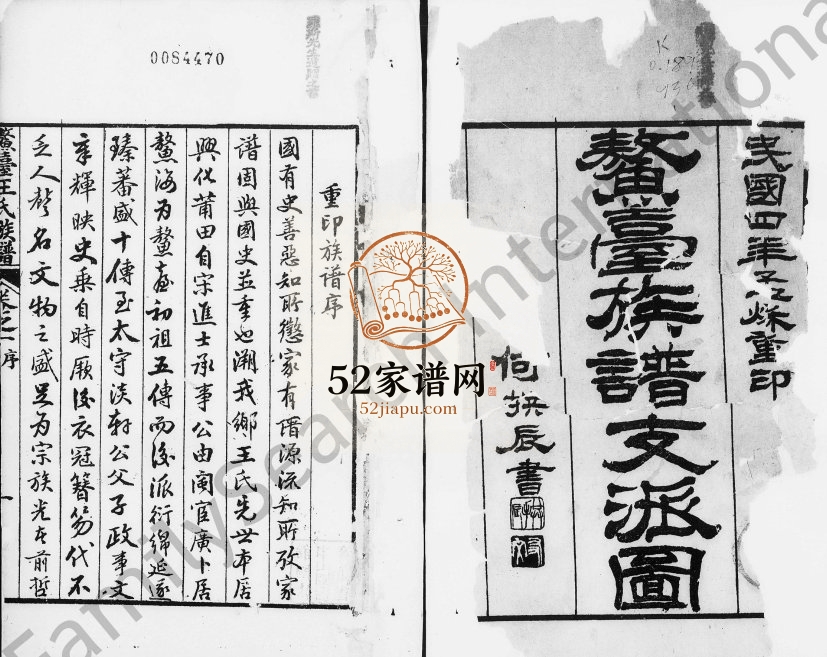 民國四年乙卯秌重印
鰲臺族譜支派圖
何拱辰書
0084470
重印族譜序
國有史善惡知所懲家有譜源流知所攷家
譜固與國史並重也溯我鄉王氏先世本居
興化莆田自宋進士承事公由閩宦廣卜居
鰲海為鰲臺初祖五傳而後派衍綿延遂
臻蕃盛十傳至太守淡軒公父子政事文
章輝映史乘自時厥後衣冠簪笏代不
乏人聲名文物之盛足為宗族光生前哲
鰲臺王氏族譜 卷之一序 一
52家谱网
52jiapu.com
FamilySearch International